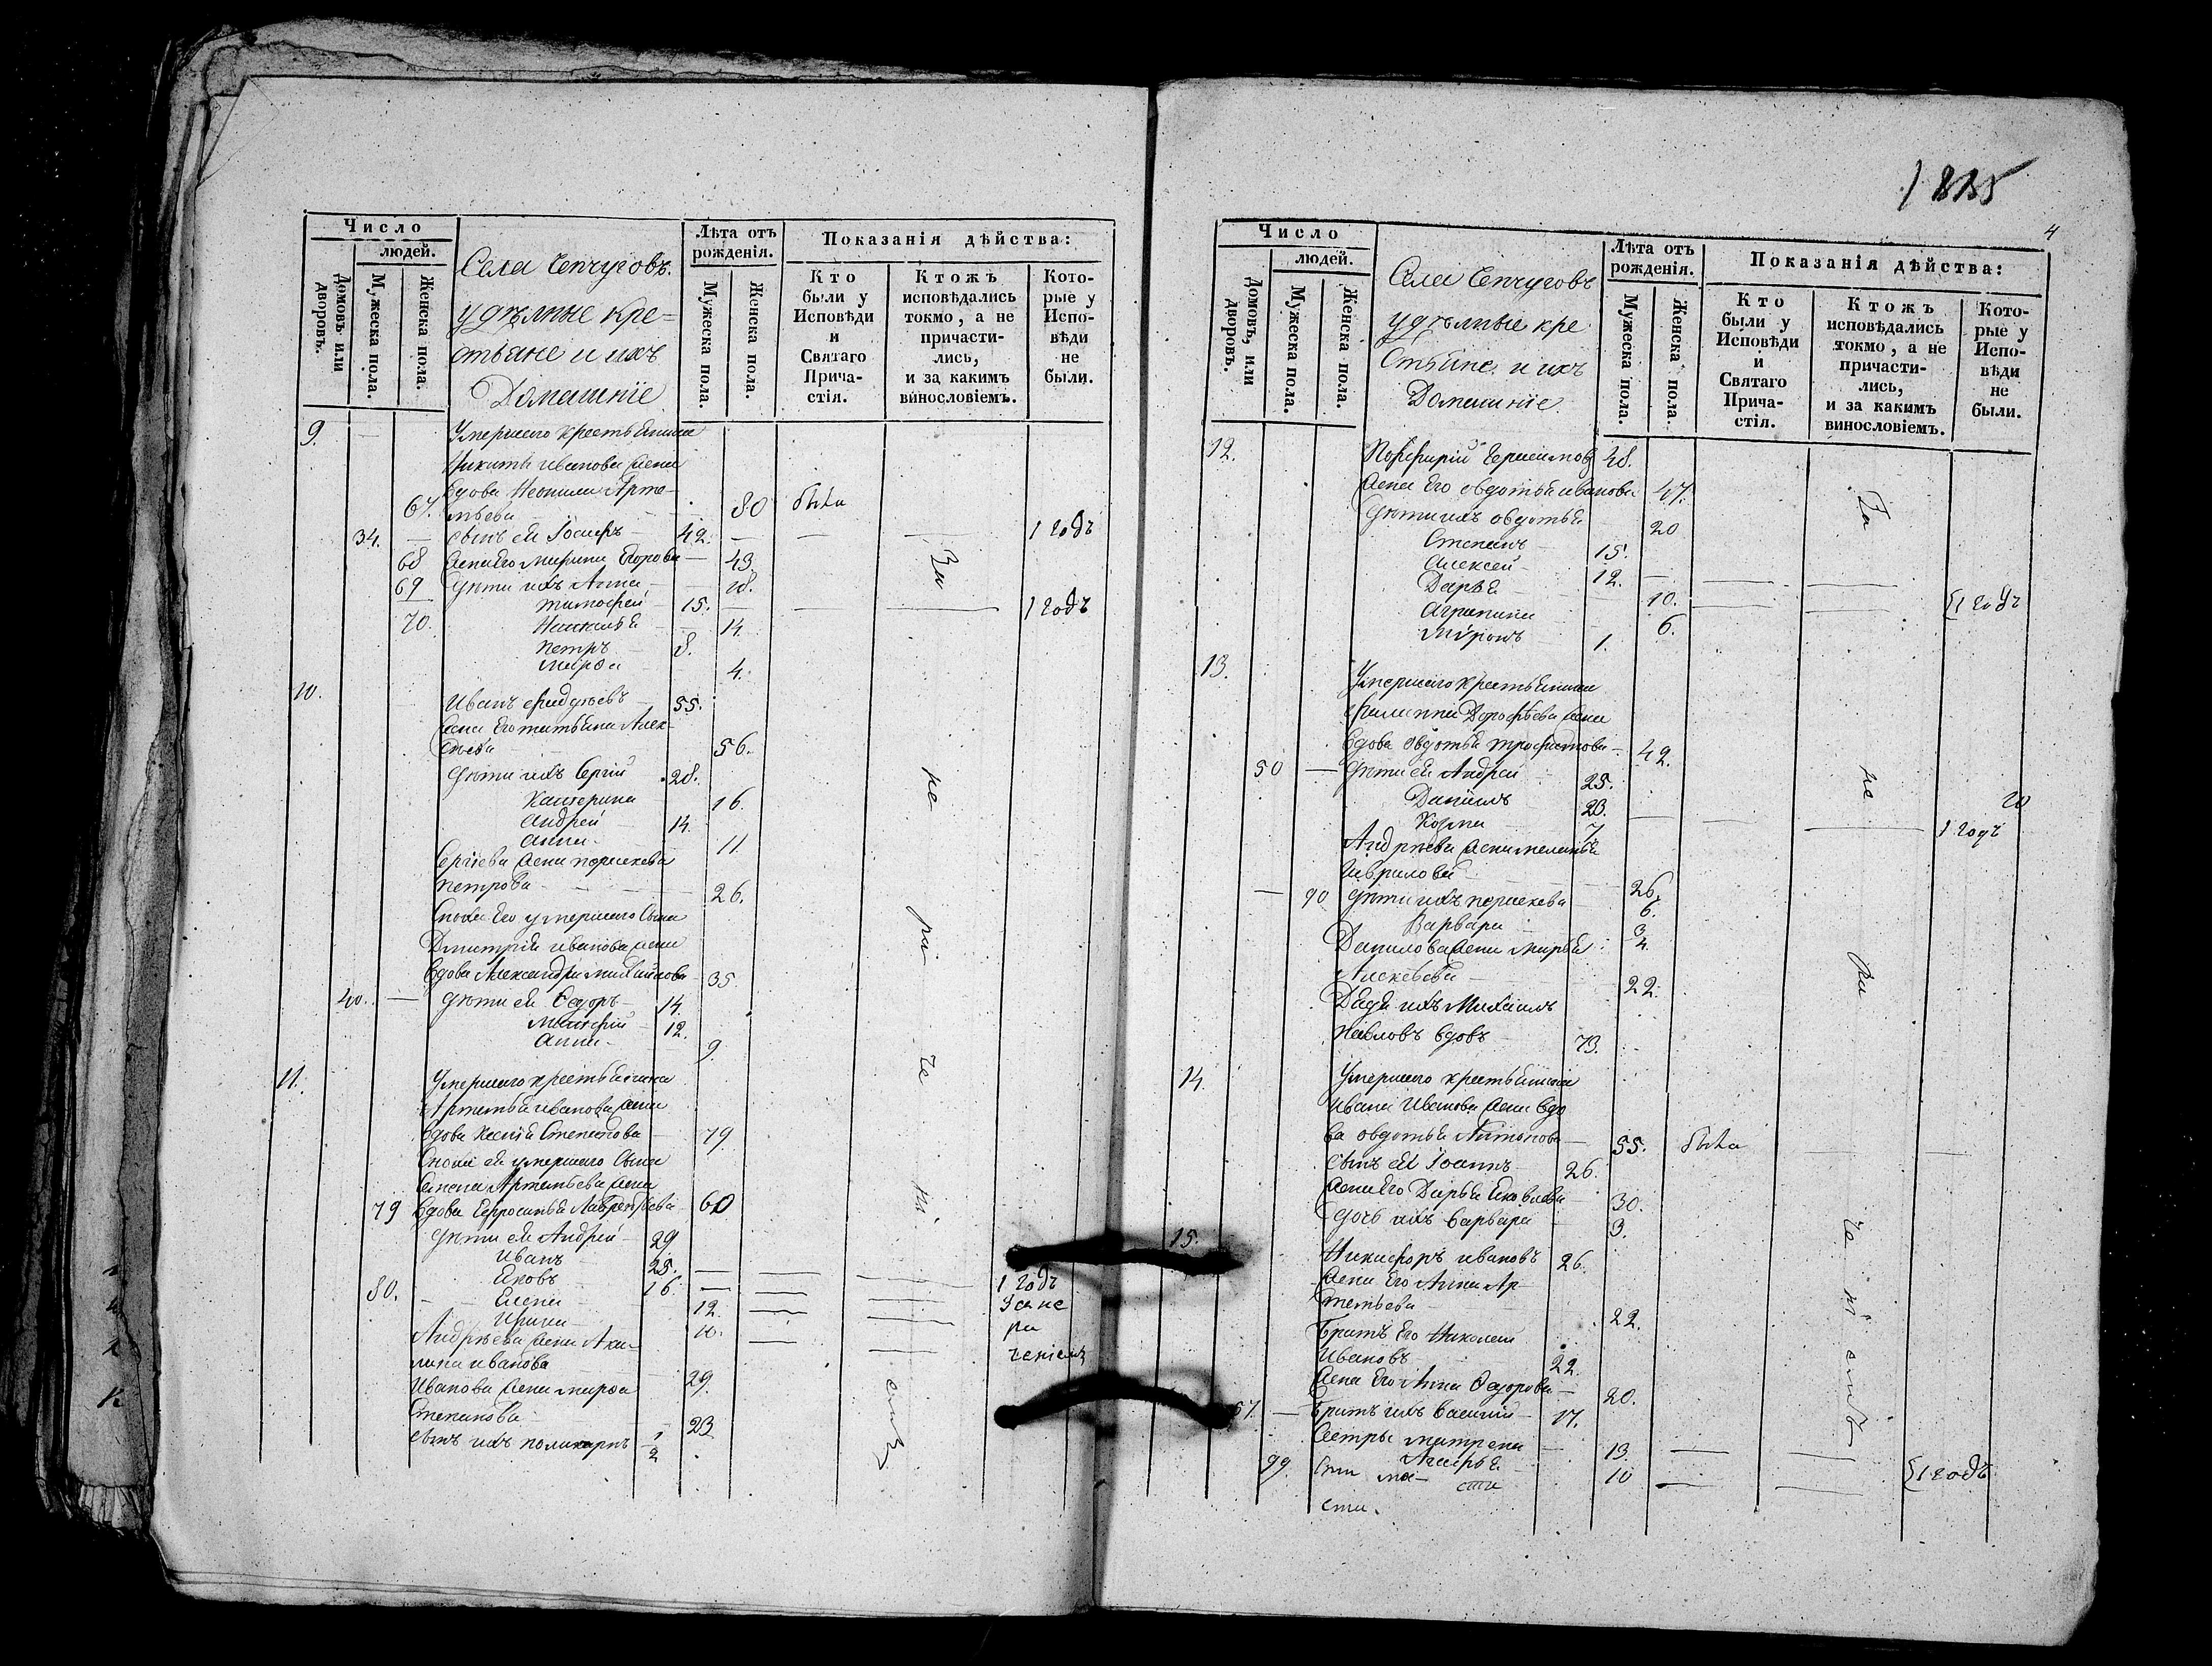 Число
людей.
Домовъ или дворовъ.
Мужеска пола.
Женска пола.
Села Сепчуговъ
удѣлные кре=
стьяне и ихъ
Домашніе
Лѣта отъ рожденія.
Мужеска пола.
Женска пола.
Показанія дѣйства:
Кто были у Исповѣди и Святаго Прича-стія.
Ктожъ исповѣдались токмо, а не причасти-лись, и за какимъ винословіемъ.
Кото-рые у Испо-вѣди не были.
9. Умершаго крестьянина
Никиты иванова жена
вдова Неонила Арте-
67. мьева 80 была
34. сынъ ея Іосифъ 42. 1 годъ
68 жена его Марина Егорова 43
69 дѣти ихъ Анна 18.
тимофей 15. 1 годъ
70. Наталья 14.
петръ 8.
марфа 4.
10. Иванъ 55.
жена его татьяна Алек-
56.
дѣти ихъ Сергій 28.
Катерина 16.
андрей 14.
анна 11.
Сергіева жена парасковья
петрова 26.
Сноха Его умершаго сына
Дмитрія иванова жена
вдова Александра михайлова 35
40. дѣти ея Ѳедоръ 14.
12.
анна 9
11. Умершаго крестьянина
Артемья иванова жена
вдова Ксенія Степанова 79.
Сноха ея умершаго сына
Артемьева жена
79 вдова Евросинья Лаврентьева 60
дѣти ея Андрей 29
иванъ 25.
Яковъ 16. 1 годъ
80. Елена 12. За не
Ирина 10. ра
Андрѣева жена Аку- ченіемъ
лина иванова 29.
Иванова жена марфа
Степанова 23
сынъ ихъ поликарпъ 1/2
За не ра че ні емъ
1835
4
Число
людей.
Домовъ, или дворовъ.
Мужеска пола.
Женска пола.
Села Сепчуговъ
удѣлные кре
стьяне и ихъ
Домашніе.
Лѣта отъ рожденія.
Мужеска пола.
Женска пола.
Показанія дѣйства:
Кто были у Исповѣди и Святаго Прича-стія.
Ктожъ исповѣдались токмо, а не причасти-лись, и за какимъ винословіемъ.
Кото-рые у Испо-вѣди не были.
12. Порфирій Герасимовъ 48.
жена Его овдотья иванова 47.
дѣти ихъ овдотья 20
Степанъ 15.
Алексей 12.
Дарья 10. 1 годъ
Агрипина 6.
Миронъ 1.
13. Умершаго крестьянина
Филиппа Дорофѣева жена
вдова овдотья трофимова 42.
50 дѣти ея Андрей 25.
Данiилъ 23.
Козма 7. 1 годъ
20
Андрѣева жена меланья
Гаврилова 26.
90 дѣти ихъ парасковья 6.
Варвара 3/4.
Данилова жена Марья
Алексѣева 22.
Дядя ихъ Михаилъ
павловъ вдовъ 73.
14. Умершаго крестьянина
ивана Иванова жена вдо
ва овдотья Антонова 55. была
сынъ ея Іоаннъ 26.
жена Его Дарья Яковлева 30.
дочь ихъ варвара 3.
15. Никифоръ ивановъ 26.
жена Его Анна Ар-
темьева 22.
братъ Его Николай
Ивановъ 22.
жена Его Анна Ѳедорова 20.
57. братъ ихъ василий 17.
Сестры матрена 13.
99. Марья 10 1 годъ
За не ра че ні емъ